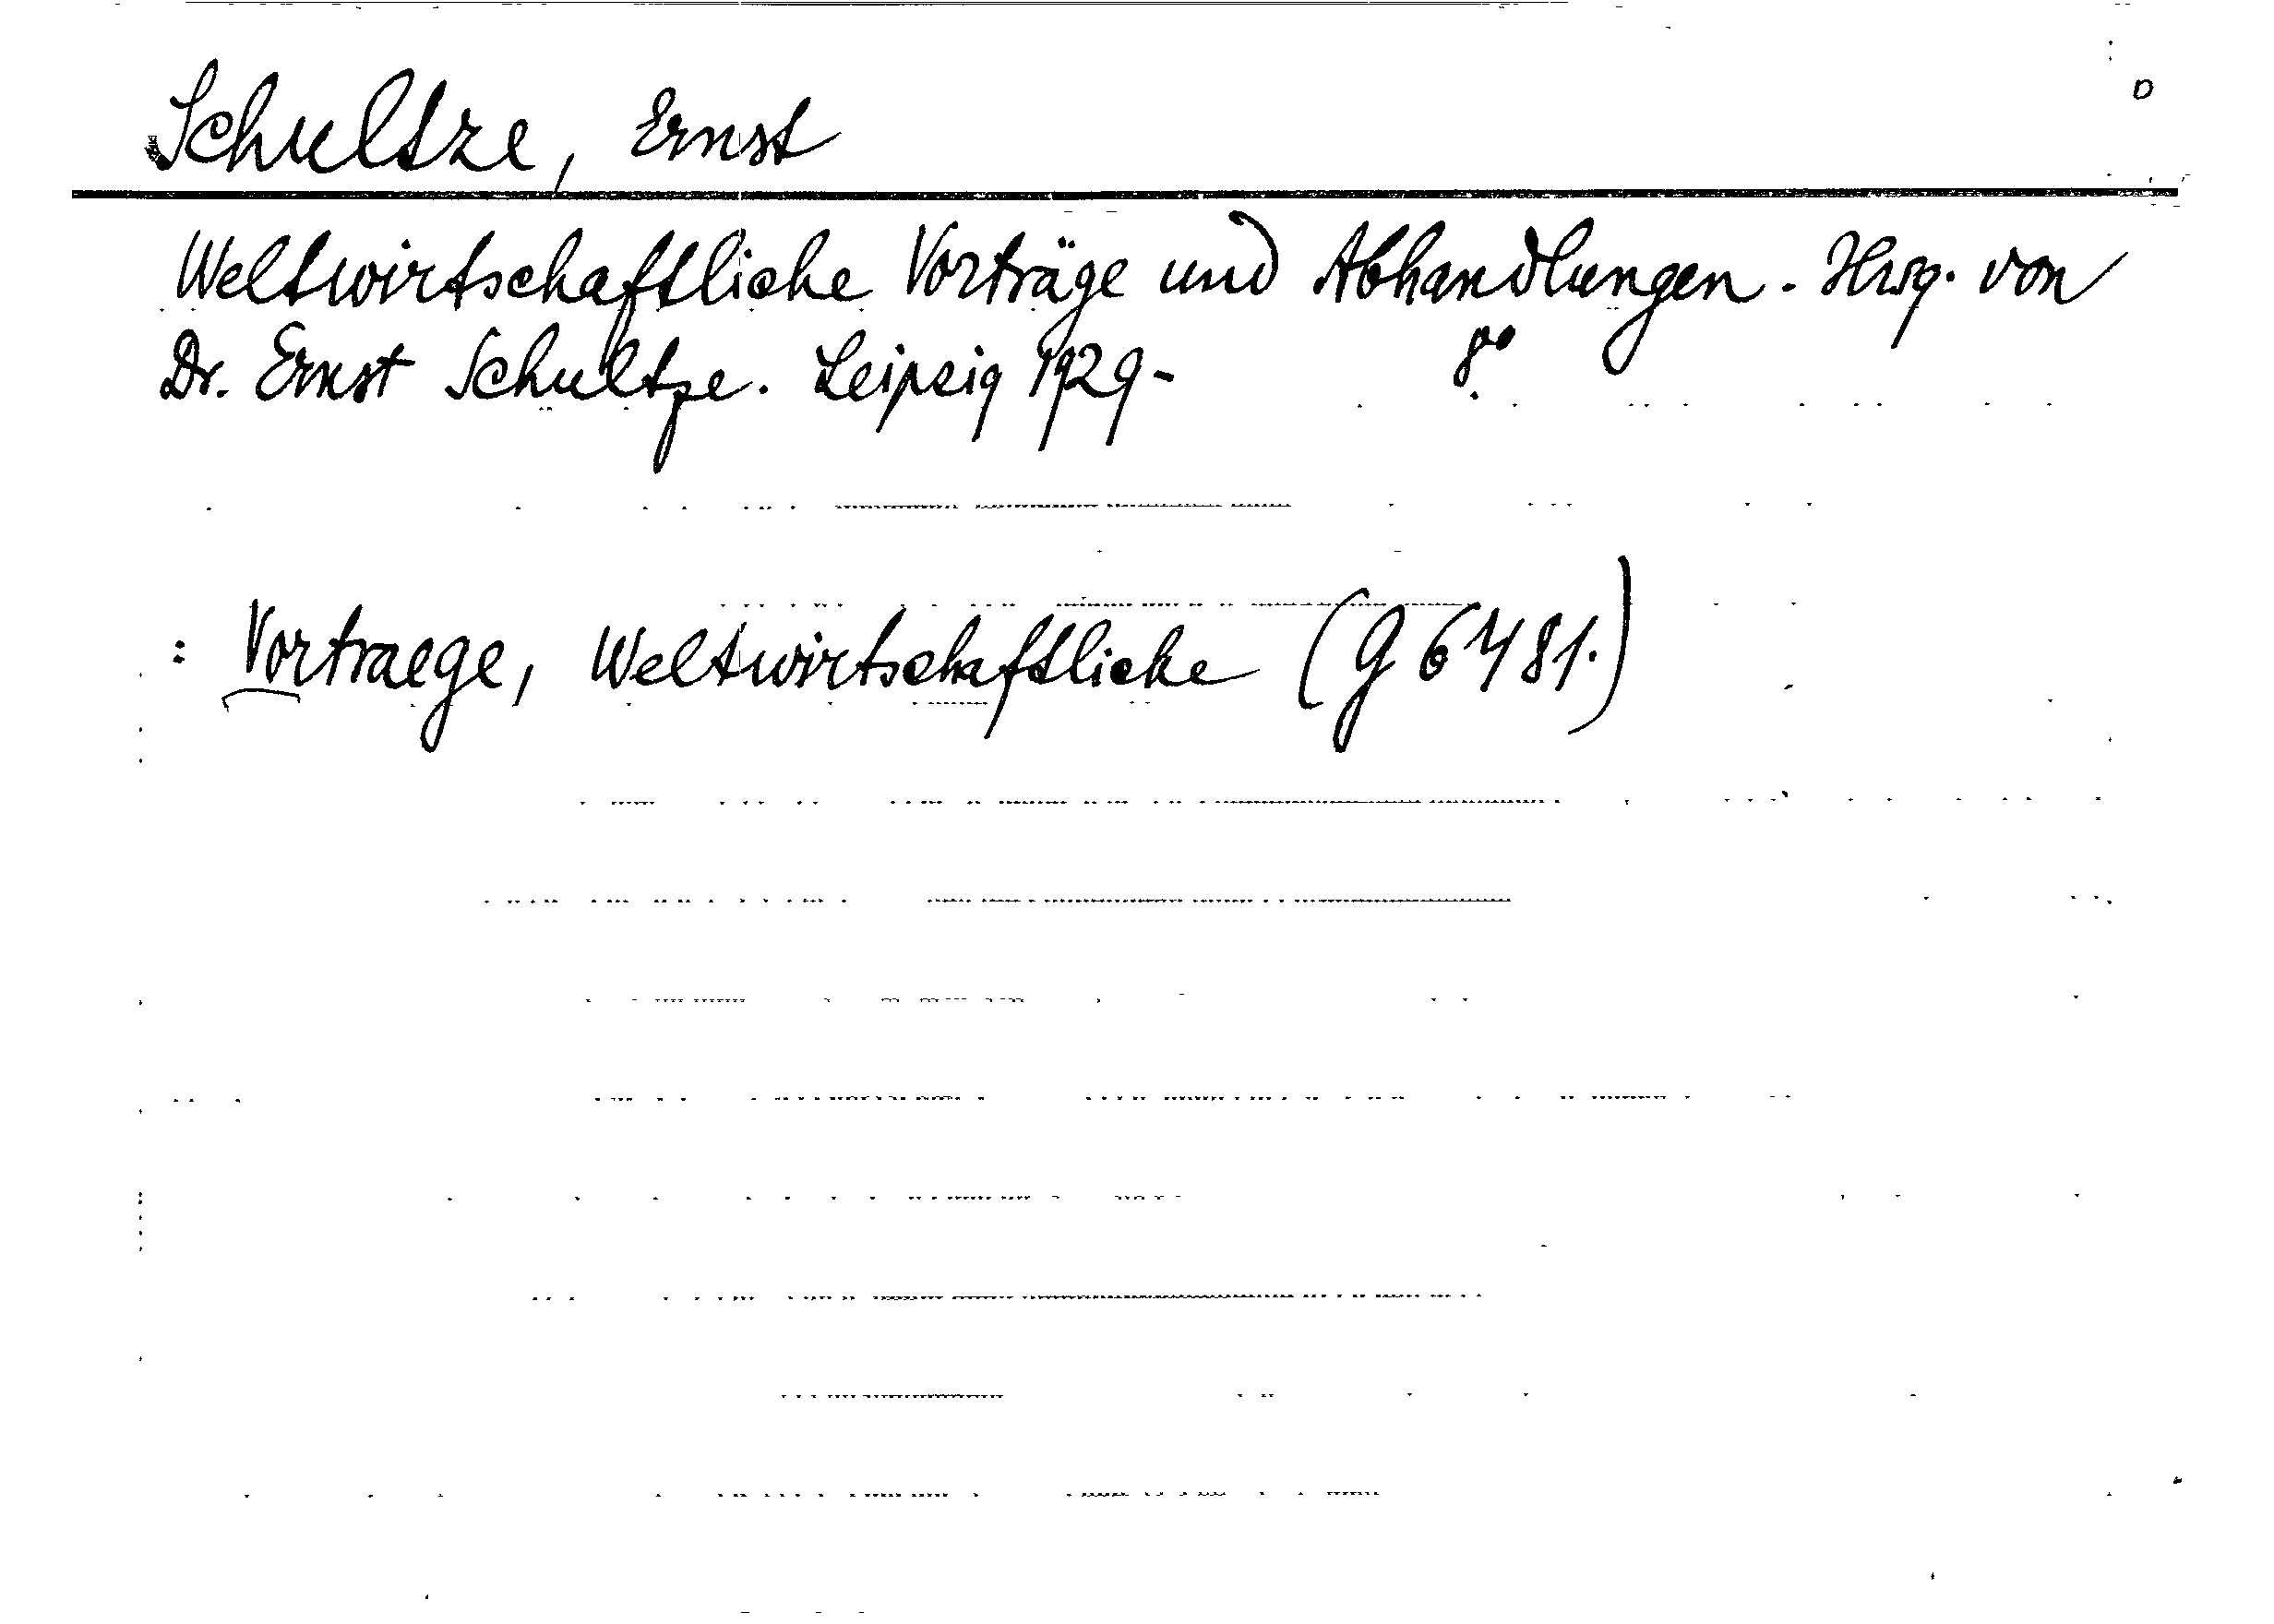 Schultze, Ernst
Weltwirtschaftliche Vorträge und Abhandlungen. Hrsg. von
Dr. Ernst Schultze. Leipzig 1929- 8°
: Vortraege, Weltwirtschaftliche (G 6481.)